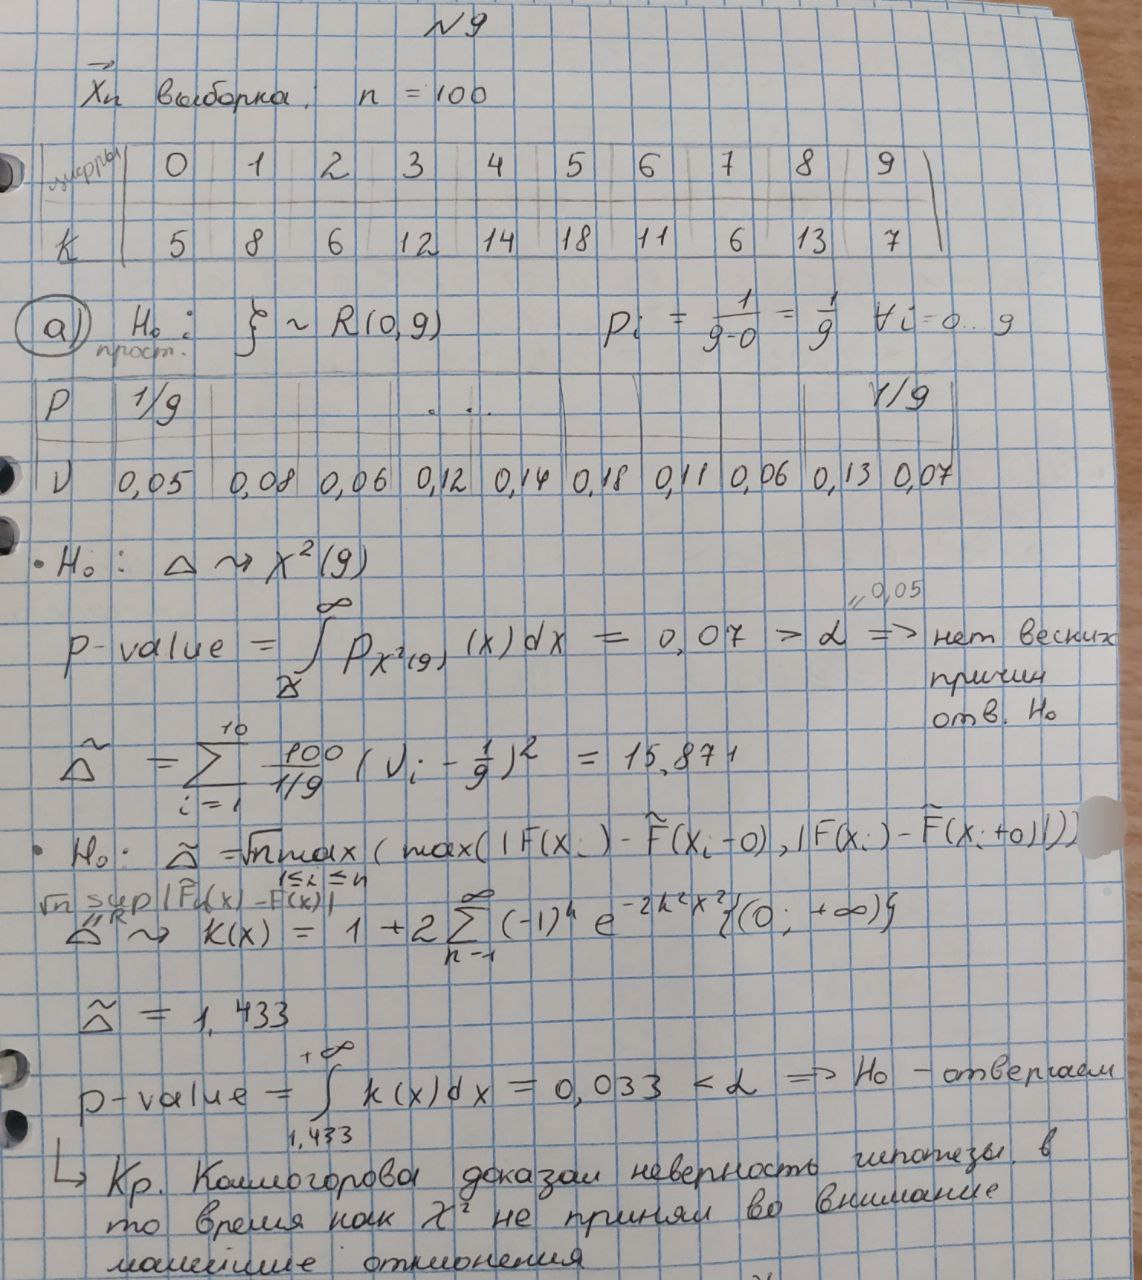 N9
X⃗n выборка, n = 100
цифры 0 1 2 3 4 5 6 7 8 9
K 5 8 6 12 14 18 11 6 13 7
а) H₀: ξ ~ R(0,9) pᵢ = 1/(9-0) = 1/9 ∀i=0..9
прост.
P 1/9 ... 1/9
ν 0,05 0,08 0,06 0,12 0,14 0,18 0,11 0,06 0,13 0,07
• H₀: Δ ⇝ χ²(9)
"0,05
p-value = ∫_Δ̃^∞ p_χ²(9) (x)dx = 0,07 > α => нет веских
причин
отв. H₀
Δ̃ = Σ_{i=1}^{10} 100/(1/9) (νᵢ - 1/9)² = 15,871
• H₀: Δ̃ = √n max_{1≤i≤n} (max(|F(xᵢ) - F̃(xᵢ-0), |F(xᵢ) - F̃(xᵢ+0)|))
√n sup_R |F̃(x) - F(x)|
Δ̃ ⇝ k(x) = 1 + 2 Σ_{k=1}^∞ (-1)^k e^{-2k²x²} {(0; +∞)}
Δ̃ = 1,433
p-value = ∫_{1,433}^{+∞} k(x)dx = 0,033 < α => H₀ - отвергаем
↳ Кр. Колмогорова доказал неверность гипотезы, в
то время как χ² не принял во внимание
малейшие отклонения